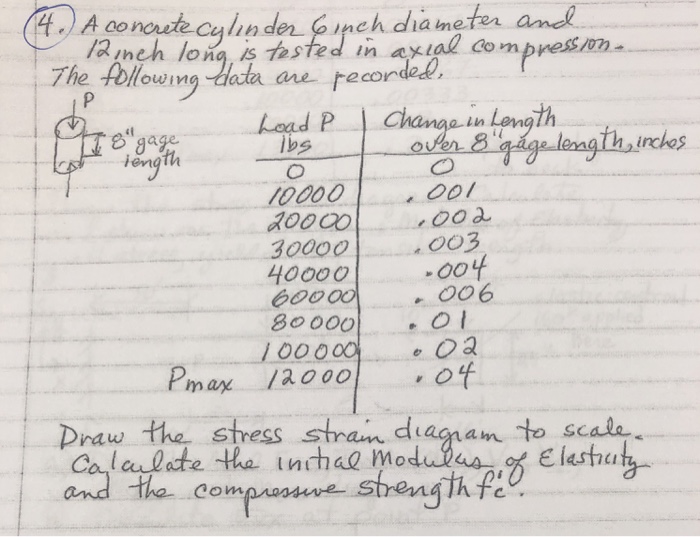 4. A concrete cylinder 6 inch diameter and
12 inch long is tested in axial compression.
The following data are recorded.
P
8" gage
length
Load P | Change in Length
lbs | over 8" gage length, inches
0 | 0
10000 | .001
20000 | .002
30000 | .003
40000 | .004
60000 | .006
80000 | .01
100000 | .02
Pmax 12000 | .04
Draw the stress strain diagram to scale.
Calculate the initial Modulus of Elasticity
and the compressive strength fc'.